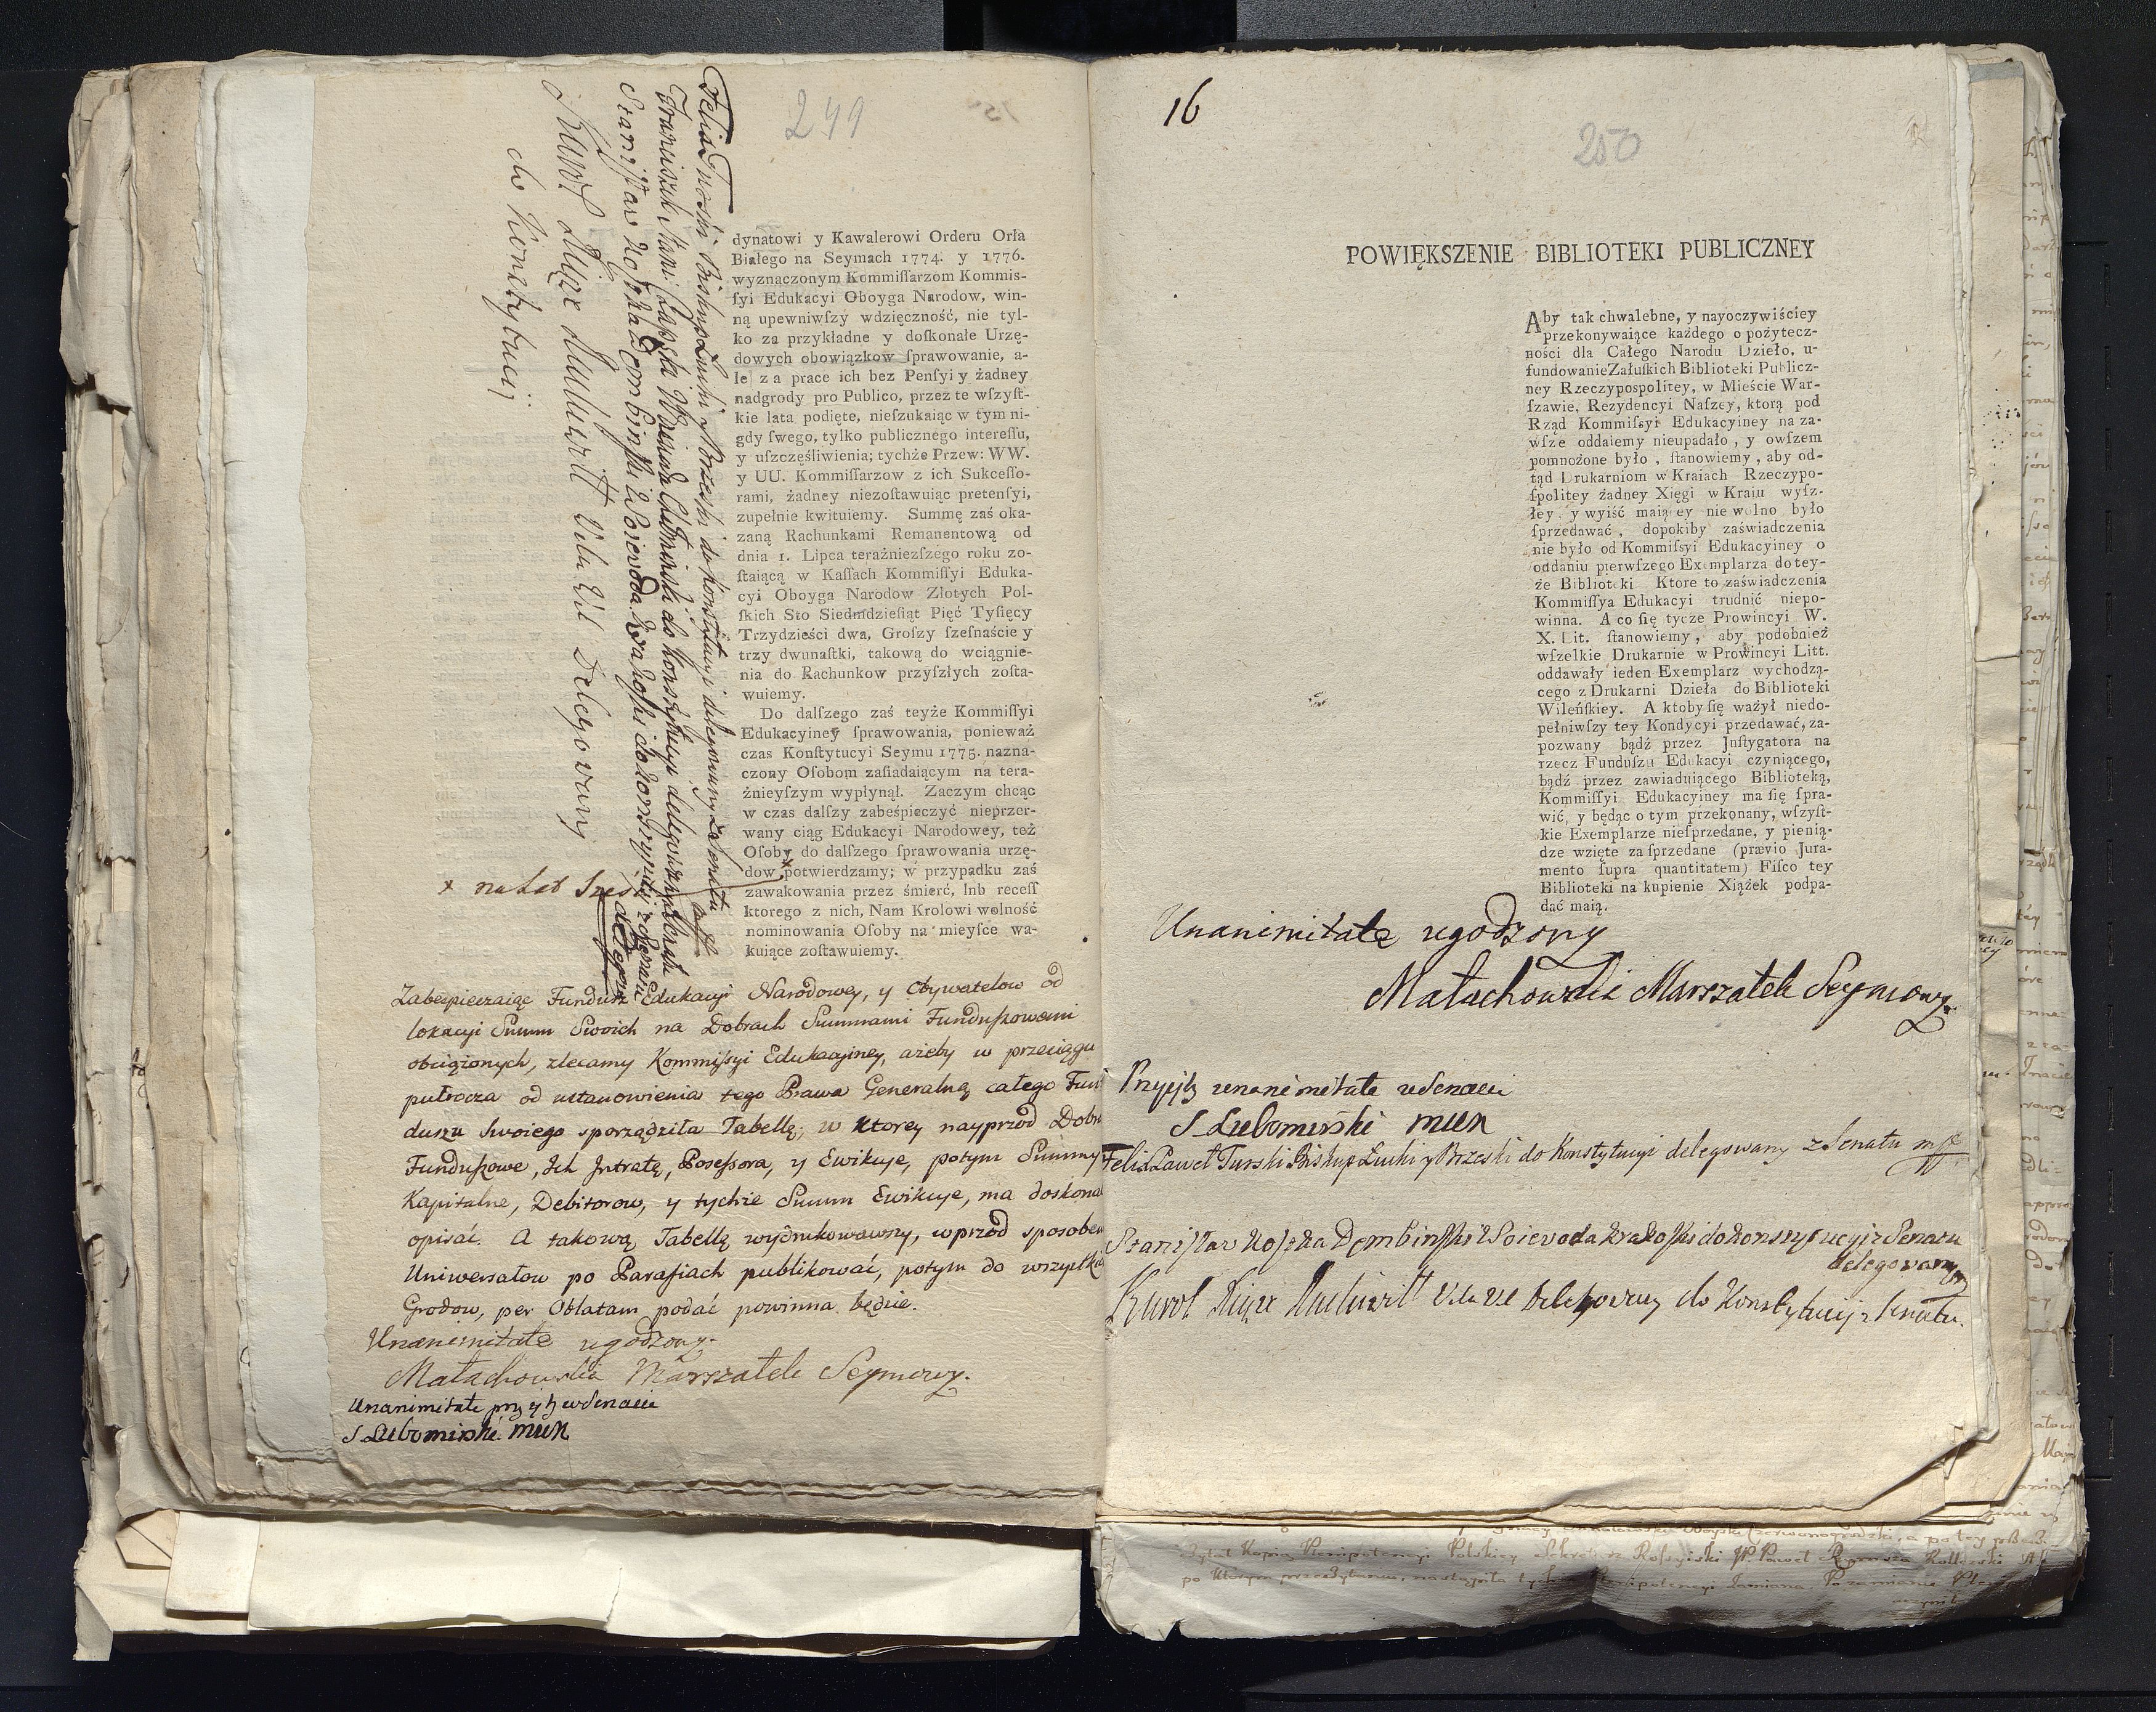 249
dynatowi y Kawalerowi Orderu Orła
Białego na Seymach 1774. y 1776.
wyznaczonym Kommiſſarzom Kommis-
ſyi Edukacyi Oboyga Narodow, win-
ną upewniwſzy wdzięczność, nie tyl-
ko za przykładne y doſkonałe Urzę-
dowych obowiązkow ſprawowanie, a-
le z a prace ich bez Penſyi y żadney
nadgrody pro Publico, przez te wſzyſt-
kie lata podięte, nieſzukaiąc w tym ni-
gdy ſwego, tylko publicznego intereſſu,
y uſzczęśliwienia; tychże Przew: WW.
y UU. Kommiſſarzow z ich Sukceſſo-
rami, żadney niezoſtawuiąc pretenſyi,
zupełnie kwituiemy. Summę zaś oka-
zaną Rachunkami Remanentową od
dnia 1. Lipca terażniezſzego roku zo-
ſtaiącą w Kaſſach Kommiſſyi Eduka-
cyi Oboyga Narodow Złotych Pol-
ſkich Sto Siedmdzieſiąt Pięć Tyſięcy
Trzydzieści dwa, Groſzy ſzeſnaście y
trzy dwunaſtki, takową do wciągnie-
nia do Rachunkow przyſzłych zoſta-
wuiemy.
Do dalſzego zaś teyże Kommiſſyi
Edukacyiney ſprawowania, ponieważ
czas Konſtytucyi Seymu 1775. nazna-
czony Oſobom zaſiadaiącym na tera-
źnieyſzym wypłynął. Zaczym chcąc
w czas dalſzy zabeśpieczyć nieprzer-
wany ciąg Edukacyi Narodowey, też
Oſoby do dalſzego ſprawowania urzę-
dow x potwierdzamy; w przypadku zaś
zawakowania przez śmierć, lnb receſſ
ktorego z nich, Nam Krolowi wolność
nominowania Oſoby na mieyſce wa-
kuiące zoſtawuiemy.
x na Lat Sześć
Felix Turski Biskup Łucki y Brzeski do Konstytucyi delegowany z Senatu mp
Franciszek Stani: Woiewoda Chełmiński do Konstytucyi delegowany z Senatu
Stanisław Kostka Dembinski Woiewoda Krakoski do Konstytucyi z Senatu
delegowany
Karol Xiąże Radziwiłł Delegowany
do Konstytucii
Zabezpieczaiąc Fundusz Edukacyi Narodowey, y Obywatelow od
lokacyi Summ Swoich na Dobrach Summami Funduszowemi
obciążonych, zlecamy Kommissyi Edukacyiney, ażeby w przeciągu
pułrocza od ustanowienia tego Prawa Generalną całego Fun-
duszu Swoiego sporządziła Tabellę; w ktorey nayprzod Dobra
Funduszowe, Ich Intratę, Possessora, y Ewikcye, potym Summy
Kapitalne, Debitorow, y tychże Summ Ewikcye, ma doskonale
opisać. A takową Tabellę wydrukowawszy, wprzod sposobem
Uniwersałow po Parafiach publikować, potym do wszystkich
Grodow, per Oblatam podać powinna będzie.
Unanimitate ugodzony.
Małachowski Marszałek Seymowy.
Unanimitate przyięty w Senacie
S Lubomirski MWK
16
250
POWIĘKSZENIE BIBLIOTEKI PUBLICZNEY
Aby tak chwalebne, y nayoczywiściey
przekonywaiące każdego o pożytecz-
ności dla Całego Narodu Dzieło, u-
fundowanie Załuſkich Biblioteki Publicz-
ney Rzeczypospolitey, w Mieście War-
ſzawie, Rezydencyi Naſzey, ktorą pod
Rząd Kommiſsyi Edukacyiney na za-
wſze oddaiemy nieupadało, y owſzem
pomnożone było, ſtanowiemy, aby od-
tąd Drukarniom w Kraiach Rzeczypo-
ſpolitey żadney Xięgi w Kraiu wyſz-
łey y wyiść maiącey nie wolno było
ſprzedawać, dopokiby zaświadczenia
nie było od Kommiſsyi Edukacyiney o
oddaniu pierwſzego Exemplarza do tey-
że Biblioteki Ktore to zaświadczenia
Kommiſſya Edukacyi trudnić niepo-
winna. A co ſię tycze Prowincyi W.
X. Lit. ſtanowiemy, aby podobnież
wſzelkie Drukarnie w Prowincyi Litt.
oddawały ieden Exemplarz wychodzą-
cego z Drukarni Dzieła do Biblioteki
Wileńſkiey. A ktoby ſię ważył niedo-
pełniwſzy tey Kondycyi przedawać, za-
pozwany bądź przez Jnſtygatora na
rzecz Funduſzu Edukacyi czyniącego,
bądź przez zawiaduiącego Biblioteką,
Kommiſſyi Edukacyiney ma ſię ſpra-
wić, y będąc o tym przekonany, wſzyſt-
kie Exemplarze nieſprzedane, y pienią-
dze wzięte za ſprzedane (prævio Jura-
mento ſupra quantitatem) Fiſco tey
Biblioteki na kupienie Xiążek podpa-
dać maią.
Unanimitate ugodzony
Małachowski Marszałek Seymowy.
Przyięty unanimitate w Senacie
S Lubomirski MWK
Felix Paweł Turski Biskup Łucki y Brzeski do Konstytucyi delegowany z Senatu mp
Stanisław Kostka Dembinski Woiewoda Krakoski do Konstytucyi z Senatu
delegowany
Karol Xiąże Radziwiłł Delegowany do Konstytucij z Senatu.